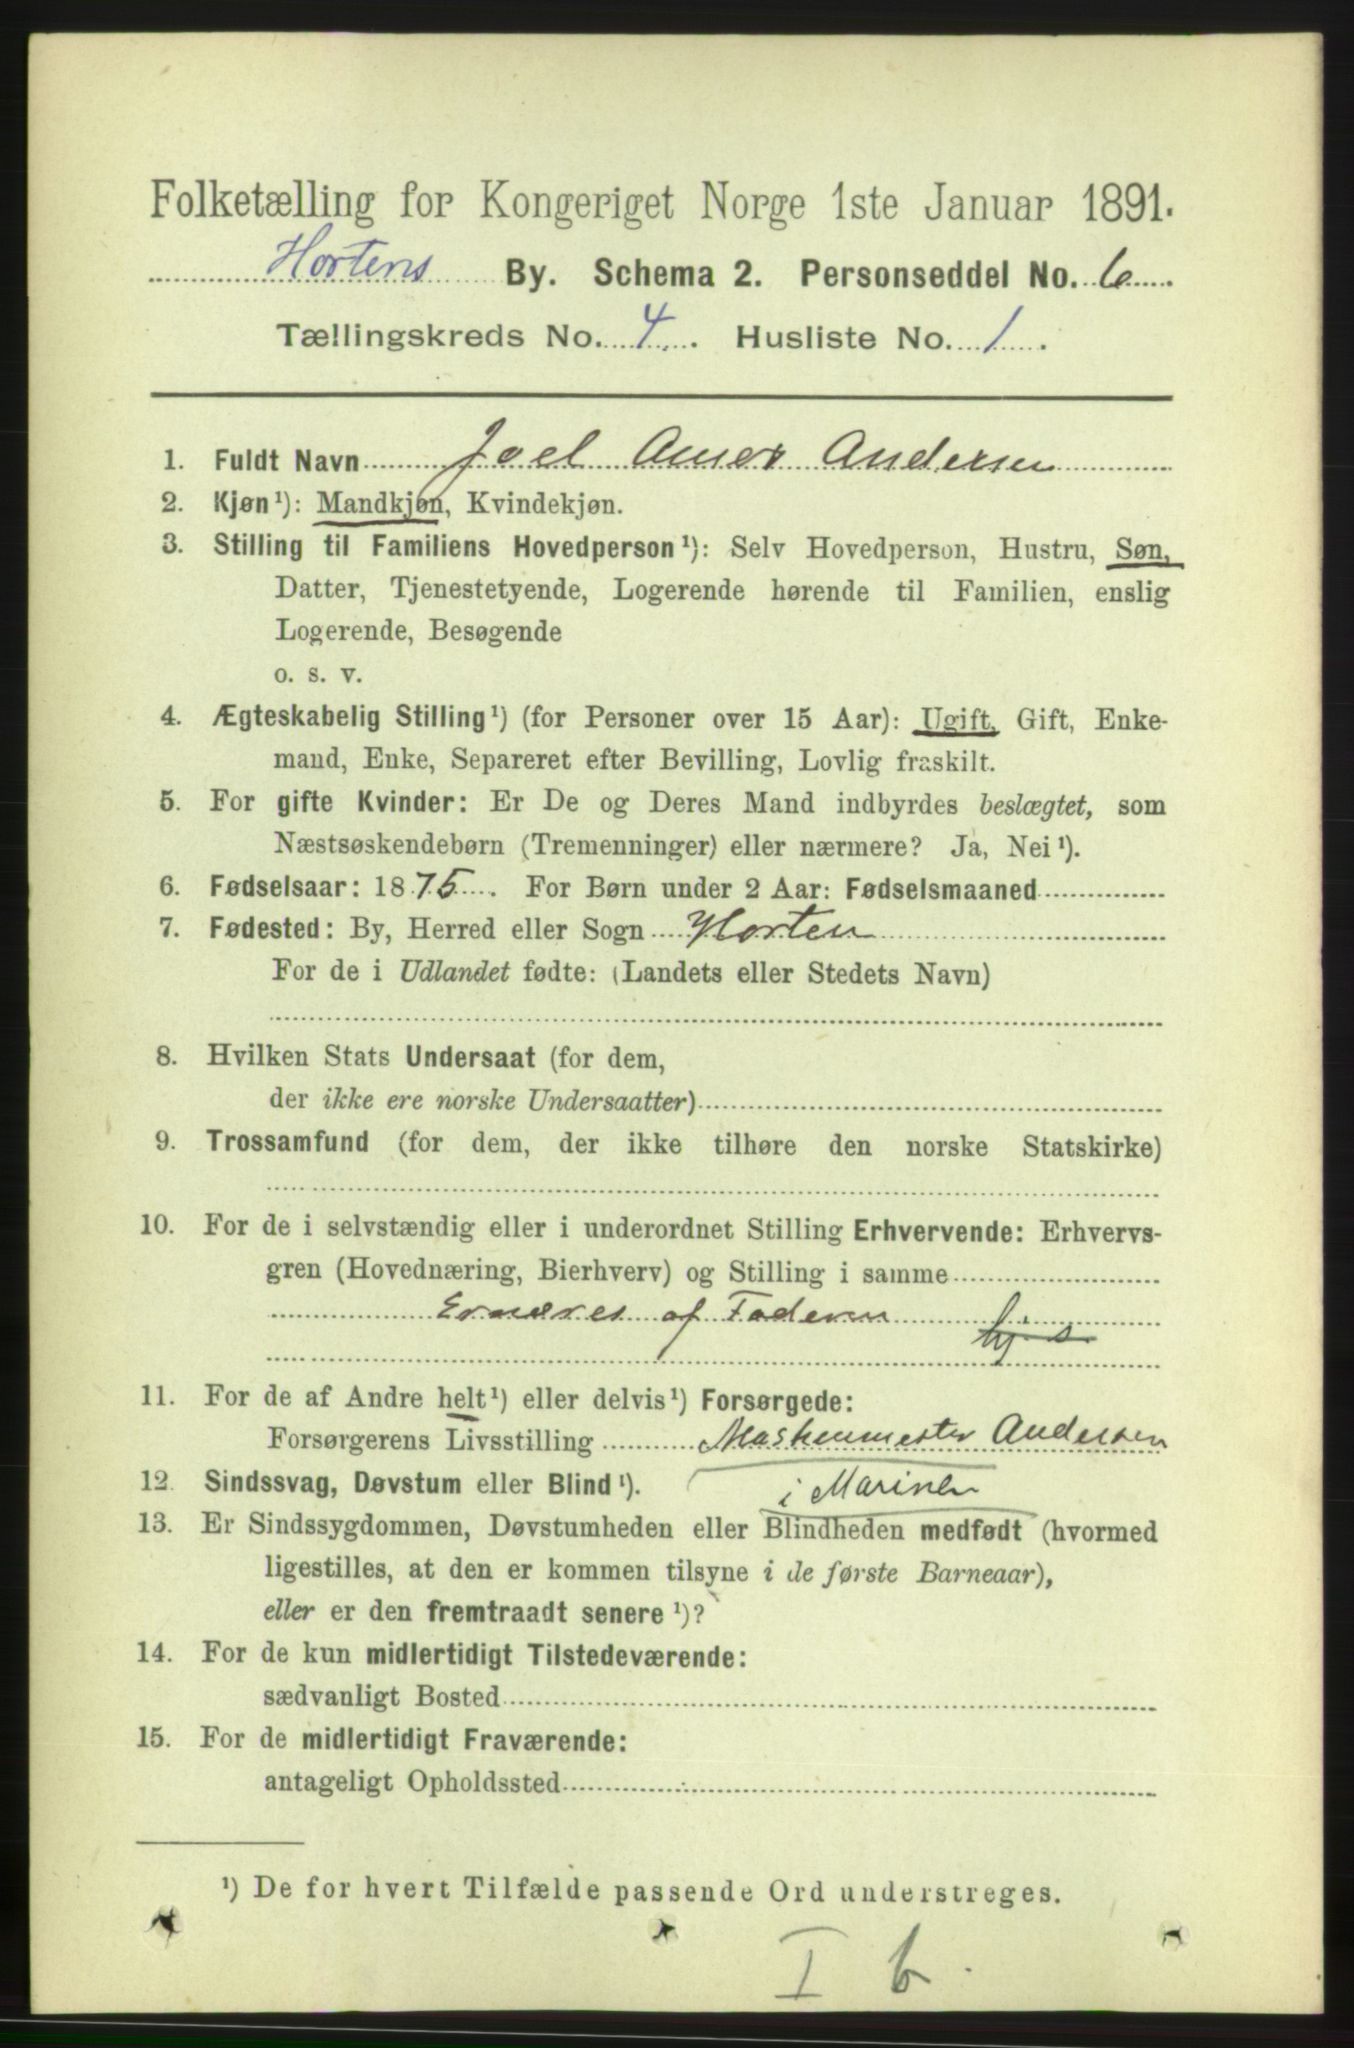 Folketælling for Kongeriget Norge 1ste Januar 1891.
Hortens By. Schema 2. Personseddel No. 6
Tællingskreds No. 4. Husliste No. 1.
1. Fuldt Navn Joel Andersen
2. Kjøn ¹): Mandkjøn, Kvindekjøn.
3. Stilling til Familiens Hovedperson ¹): Selv Hovedperson, Hustru, Søn,
Datter, Tjenestetyende, Logerende hørende til Familien, enslig
Logerende, Besøgende
o. s. v.
4. Ægteskabelig Stilling ¹) (for Personer over 15 Aar): Ugift, Gift, Enke-
mand, Enke, Separeret efter Bevilling, Lovlig fraskilt.
5. For gifte Kvinder: Er De og Deres Mand indbyrdes beslægtet, som
Næstsøskendebørn (Tremenninger) eller nærmere? Ja, Nei ¹).
6. Fødselsaar: 1875. For Børn under 2 Aar: Fødselsmaaned
7. Fødested: By, Herred eller Sogn Horten
For de i Udlandet fødte: (Landets eller Stedets Navn)
8. Hvilken Stats Undersaat (for dem,
der ikke ere norske Undersaatter)
9. Trossamfund (for dem, der ikke tilhøre den norske Statskirke)
10. For de i selvstændig eller i underordnet Stilling Erhvervende: Erhvervs-
gren (Hovednæring, Bierhverv) og Stilling i samme
Ernæres af Faderen
11. For de af Andre helt ¹) eller delvis ¹) Forsørgede:
Forsørgerens Livsstilling Maskenmester Andersen
12. Sindssvag, Døvstum eller Blind ¹). i Marinen
13. Er Sindssygdommen, Døvstumheden eller Blindheden medfødt (hvormed
ligestilles, at den er kommen tilsyne i de første Barneaar),
eller er den fremtraadt senere ¹)?
14. For de kun midlertidigt Tilstedeværende:
sædvanligt Bosted
15. For de midlertidigt Fraværende:
antageligt Opholdssted
¹) De for hvert Tilfælde passende Ord understreges.
I b.